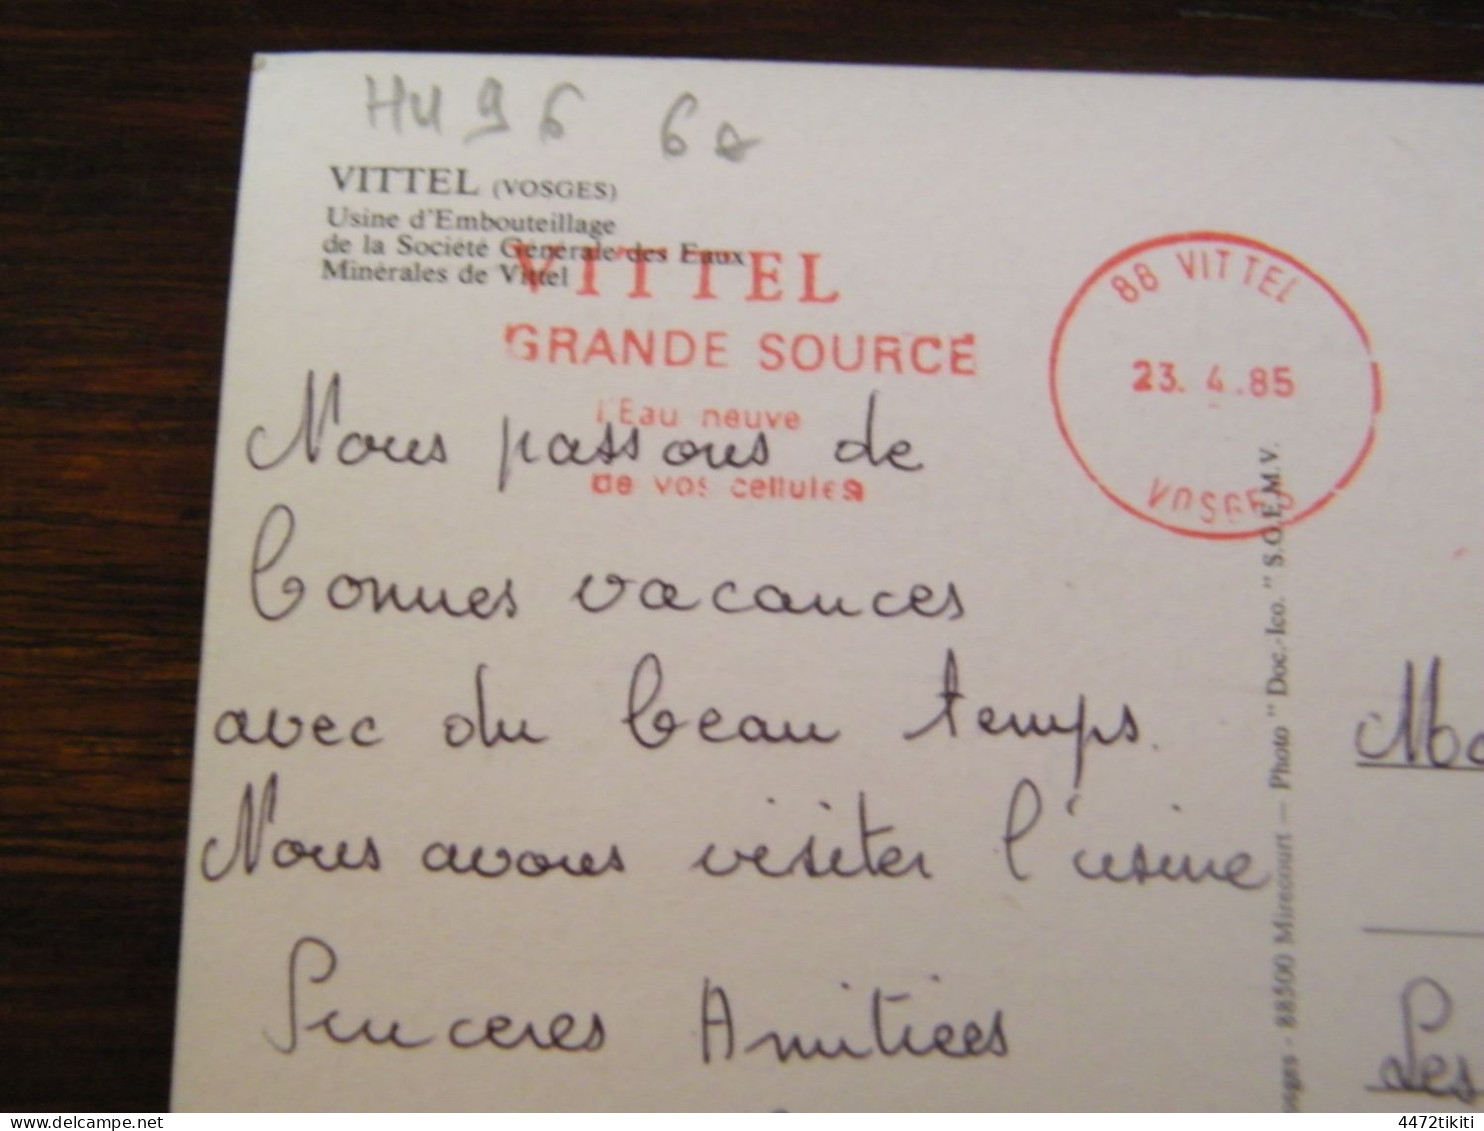 HU 96 6a
VITTEL (VOSGES)
Usine d'Embouteillage
de la Société Générale des Eaux
Minérales de Vittel
VITTEL
GRANDE SOURCE
l'Eau neuve
de vos cellules
88 VITTEL
23. 4.85
VOSGES
Nous passons de
bonnes vacances
avec du beau temps.
Nous avons visiter l'usine
Sinceres Amitiees
osges - 88500 Mirecourt — Photo "Doc.-Ico." S.O.E.M.V.
Les
4472tikiti